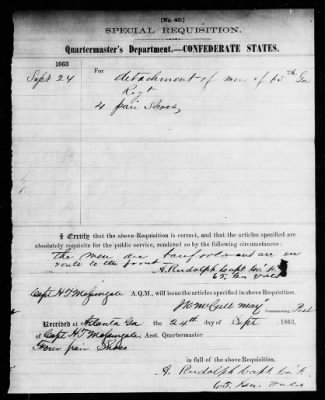 [No. 40.]
SPECIAL REQUISITION.
Quartermaster's Department.—CONFEDERATE STATES.
1863
Sept 24
For
detachment of men of 65th Ga
Regt
4 pair Shoes,
I Certify that the above Requisition is correct, and that the articles specified are
absolutely requisite for the public service, rendered so by the following circumstances:
the men are barefooted and are en
route to the front
A. Rudolph Capt Co
65, Ga Vols
Capt H T A.Q.M., will issue the articles specified in above Requisition.
Maj Commanding Post
Received at Atlanta Ga the 24th day of Sept 1863,
of Capt H T Asst. Quartermaster
Four pair Shoes
in full of the above Requisition.
A. Rudolph Capt Co
65. Ga. Vols